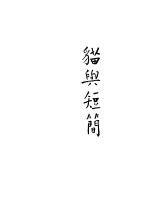 貓與短簡